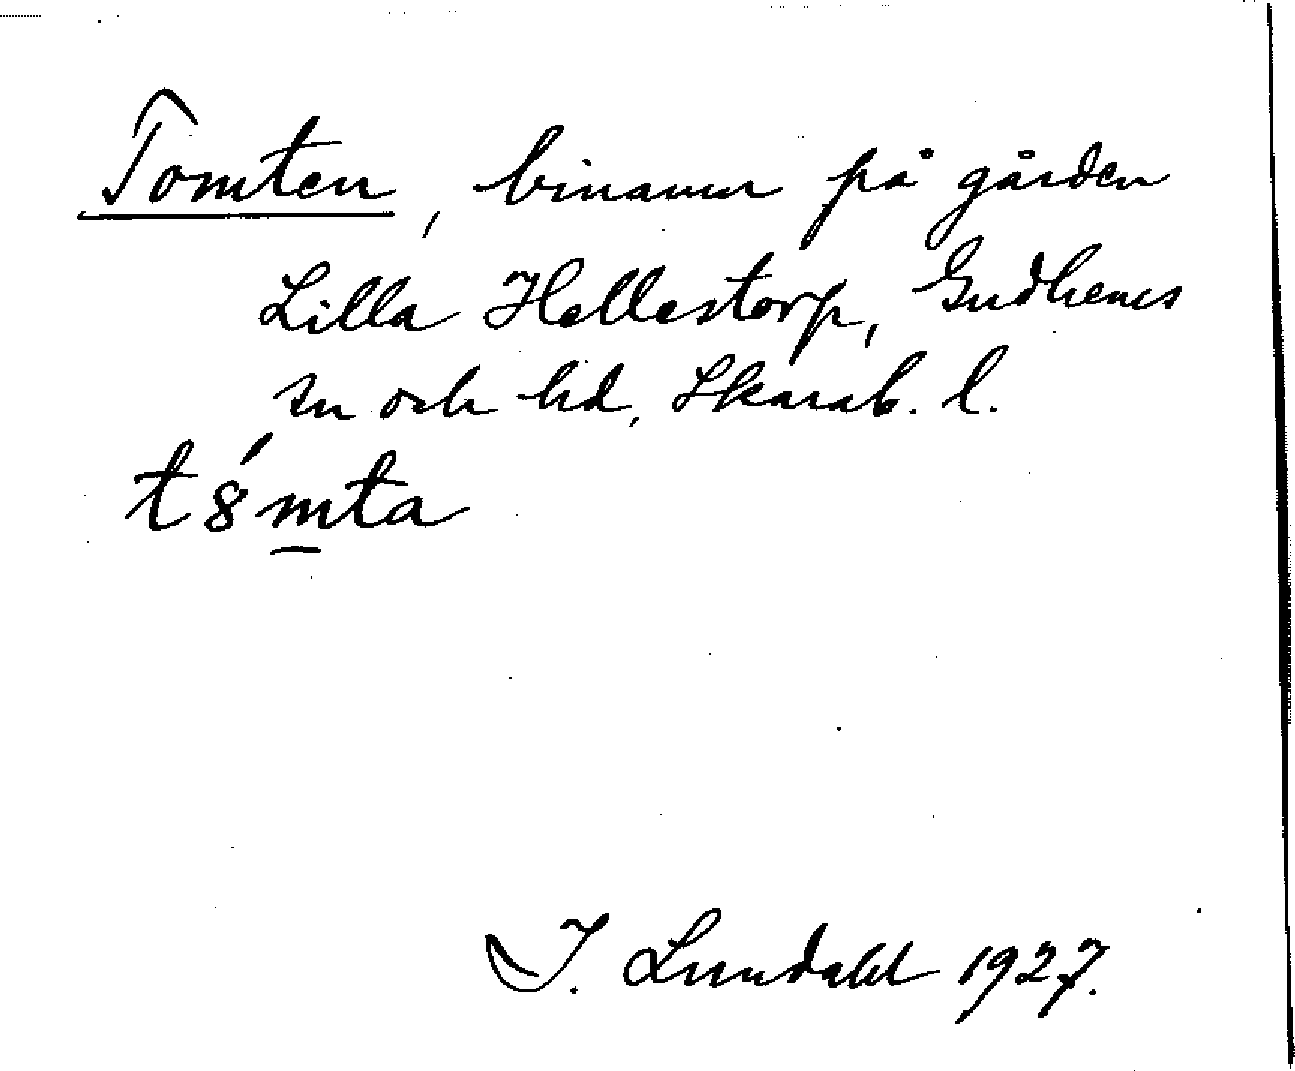 Tomten, binamn på gården
Lilla Hellestorp, Gudhems
sn och hd, Skarab. l.
t8́mta
I. Lundahl 1927.